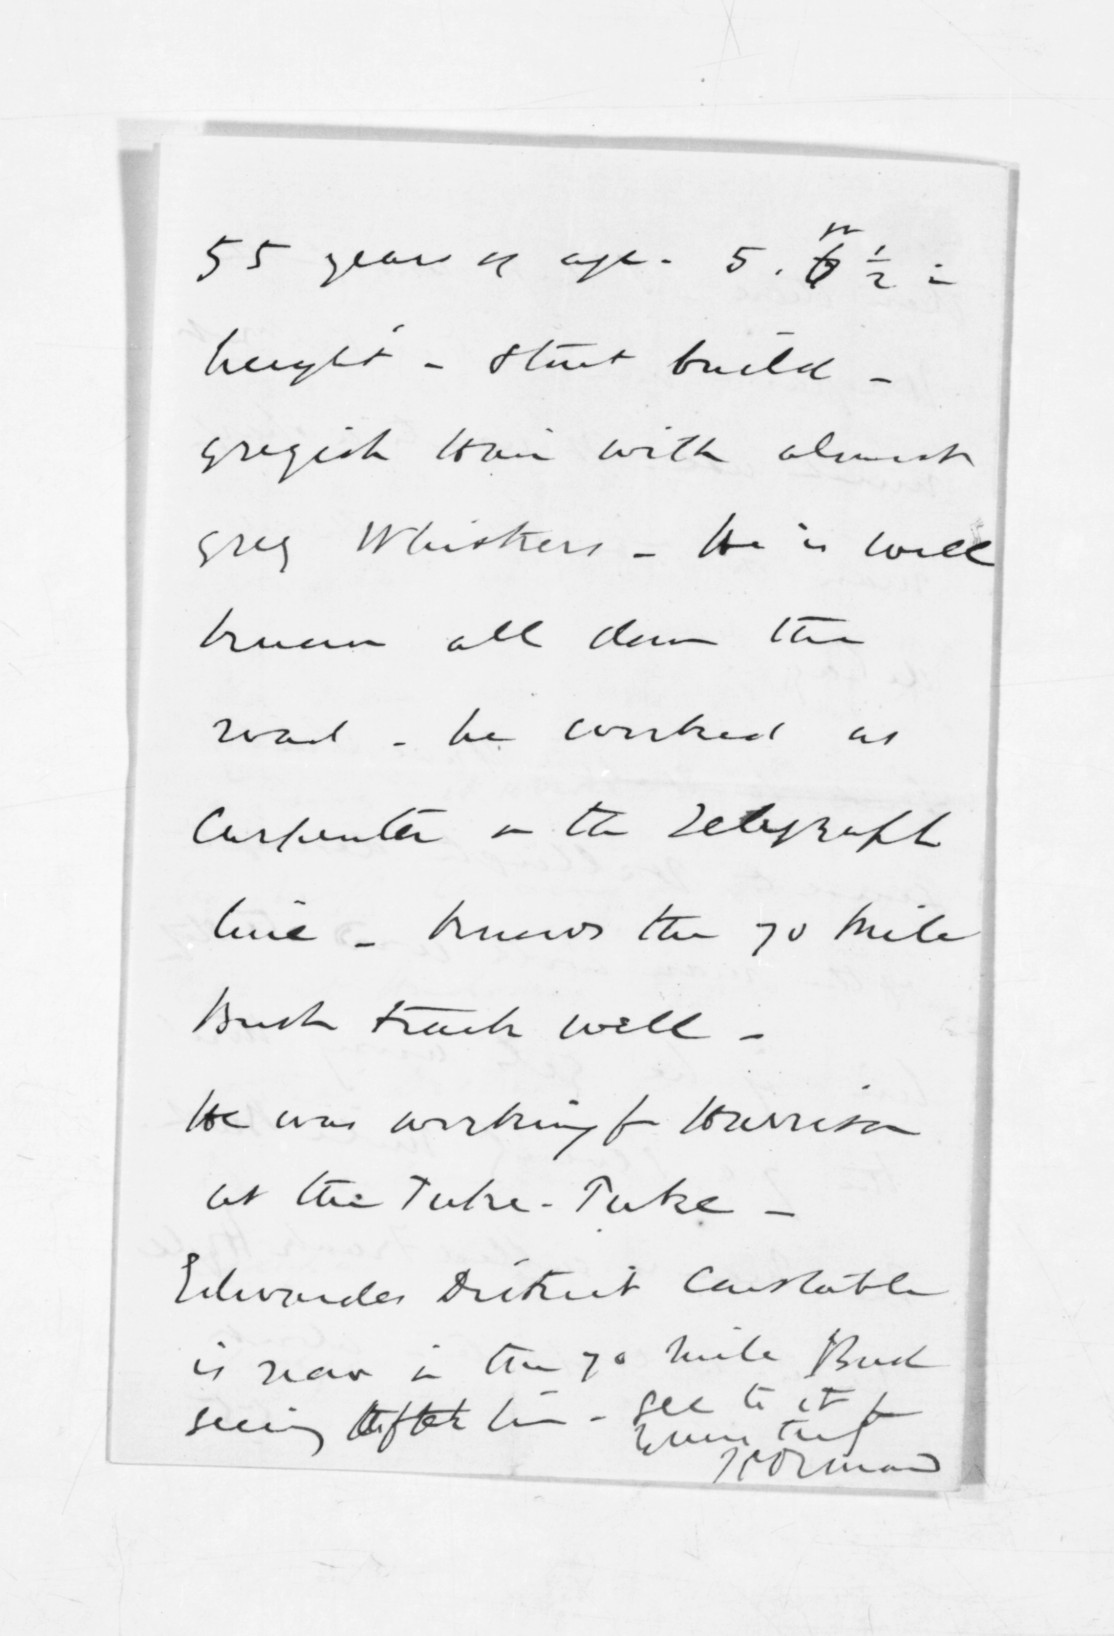 55 years of age. 5. 6 ½ in
height - Stout build -
greyish Hair with almost
grey Whiskers - He is well
known all down the
road - he worked as
Carpenter on the Telegraph
line - knows the 70 Mile
Bush track well -
He was working for Harrison
at the Tuke-Tuke -
Edwardes District Constable
is now in the 70 mile Bush
seeing after him - see to it for
Yours truly